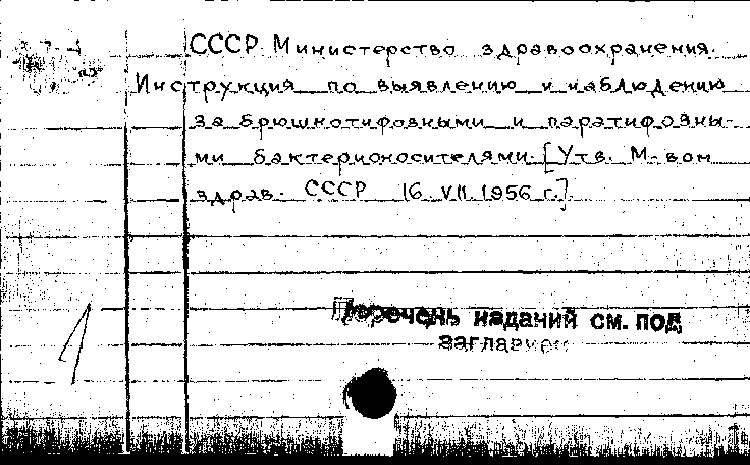 СССР. Министерство здравоохранения.
Инструкция по выявлению и наблюдению
за брюшнотифозными и паратифозны-
ми бактерионосителями. [Утв. М-вом
здрав. СССР 16.VII.1956 г.].
Перечень изданий см. под
заглавием